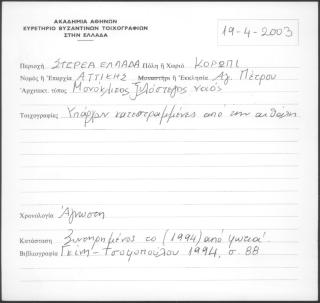 ΑΚΑΔΗΜΙΑ ΑΘΗΝΩΝ
ΕΥΡΕΤΗΡΙΟ ΒΥΖΑΝΤΙΝΩΝ ΤΟΙΧΟΓΡΑΦΙΩΝ
ΣΤΗΝ ΕΛΛΑΔΑ
19-4-2003
Περιοχή ΣΤΕΡΕΑ ΕΛΛΑΔΑ Πόλη ἤ Χωριό ΚΟΡΩΠΙ
Νομός ἤ Ἐπαρχία ΑΤΤΙΚΗΣ Μοναστήρι ἤ Ἐκκλησία Αγ. Πέτρου
Ἀρχιτεκτ. τύπος Μονόκλιτος ξυλόστεγος ναός
Τοιχογραφίες Υπάρχουν κατεστραμμένες από την αιθάλη
Χρονολογία Άγνωστη
Κατάσταση Συντηρημένος το (1994) από φωτιά
Βιβλιογραφία Γκίνη-Τσοφοπούλου 1994, σ. 88